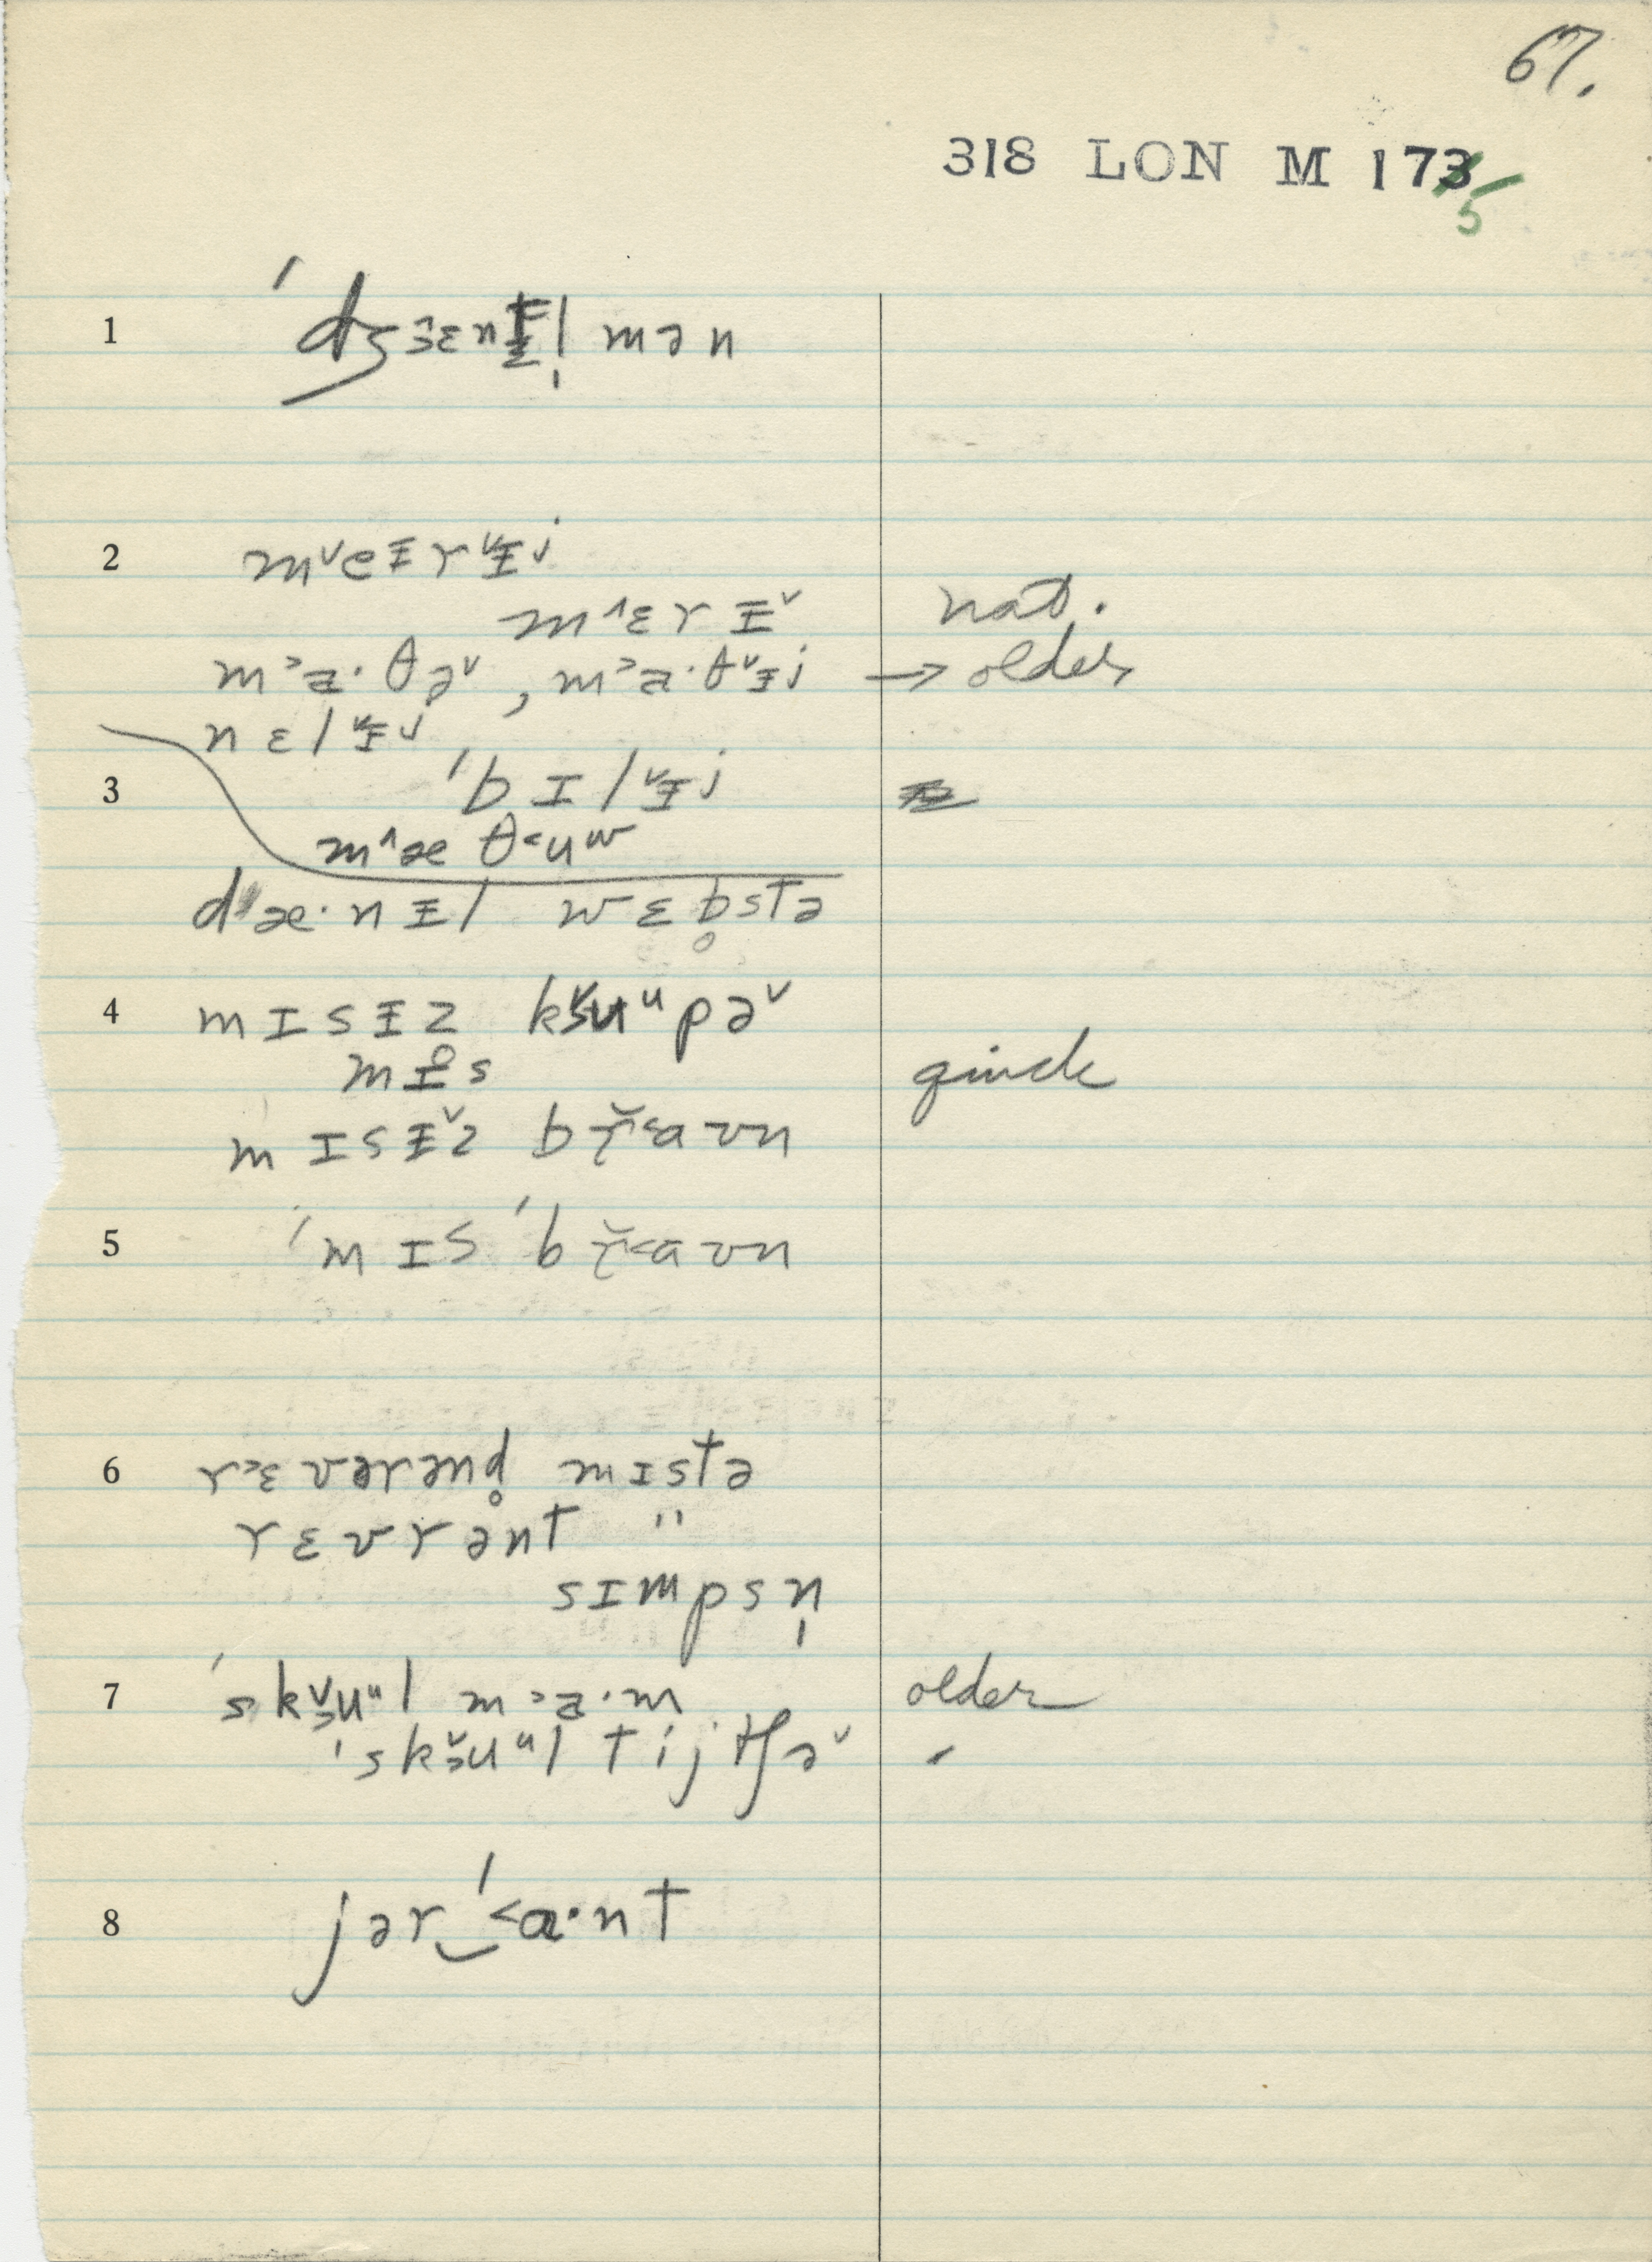 67.
318 LON M 173 5
1 ˈdʒɛnt̵l̩ mən
2 mᵛeɪ̵rᵛɪ̵j
m^ɛrɪ̵ᵛ nat.
m˃a·θəᵛ, m˃a·θᵛɪ̵j → older
nɛlᵛɪ̵j
3 ˈbɪlᵛɪ̵j
m^æθ˂uʷ
dæ·nɪ̵l wɛb̥stə
4 mɪsɪ̵z kʉᵘpəᵛ
mɪ̵s quick
mɪsɪ̵ᵛz br̆˂aʊn
5 ˈmɪs ˈbr̆˂aʊn
6 r˃ɛvərənd̥ mɪstə
rɛvrənt "
sɪmpsn̩
7 ˈskʉᵘl m˃a·m older
ˈskʉᵘl tijtʃəᵛ
8 jər‿ˈ˂ɑ·nt